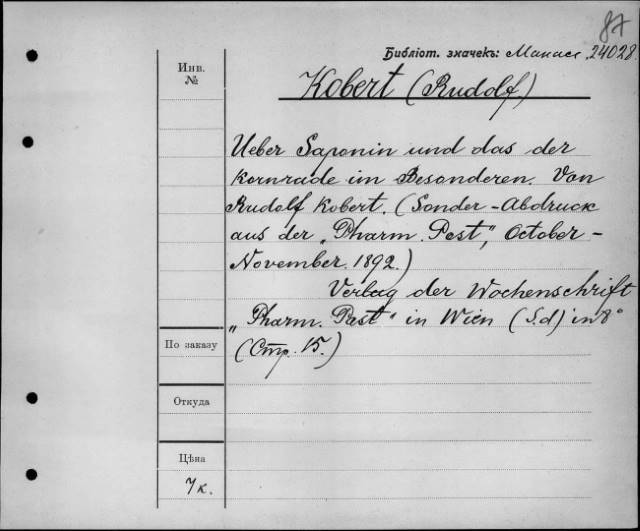 87
Библіот. значекъ: Манасс. 24028.
Инв.
№
Kobert (Rudolf.)
Ueber Saponin und das der
Kornrade im Besonderen. Von
Rudolf Kobert. (Sonder-Abdruck
aus der „Pharm. Post", October-
November. 1892.)
Verlag der Wochenschrift
„Pharm. Post" in Wien (S.d) in 8°
По заказу
(Стр. 15.)
Откуда
Цѣна
7к.